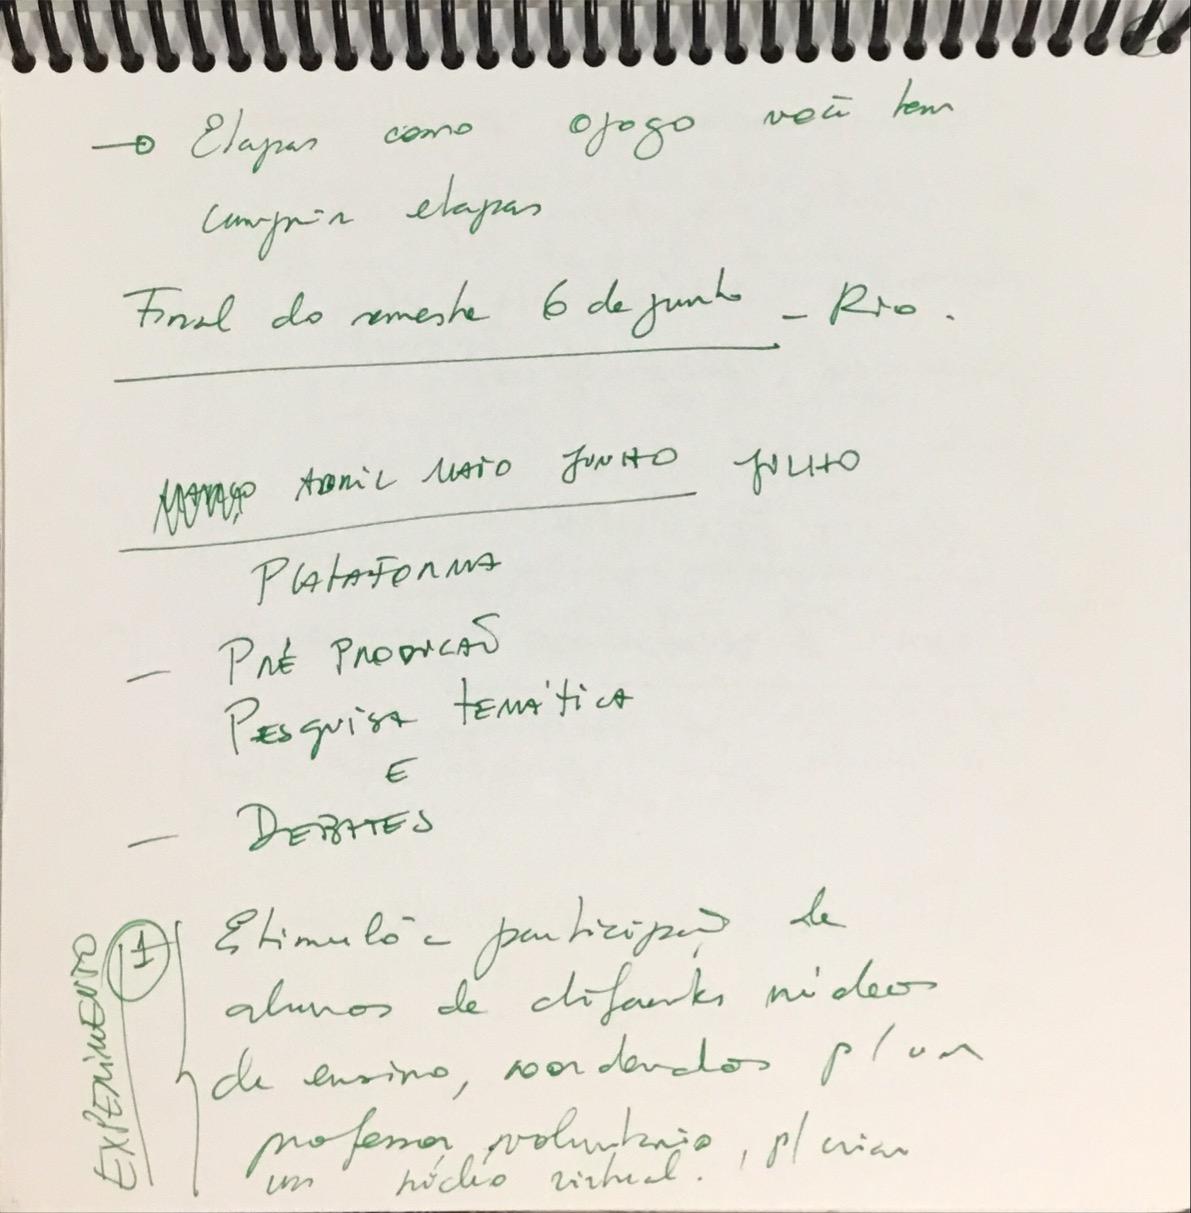 → Etapas como o jogo você tem
cumprir etapas
Final do semestre 6 de junho - Rio.
ABRIL MAIO JUNHO JULHO
PLATAFORMA
- PRÉ PRODUÇÃO
PESQUISA TEMÁTICA
E
- DEBATES
EXPERIMENTO
1
Estimular a participação de
alunos de diferentes núcleos
de ensino, coordenados p/ um
professor voluntário, p/ criar
um núcleo virtual.